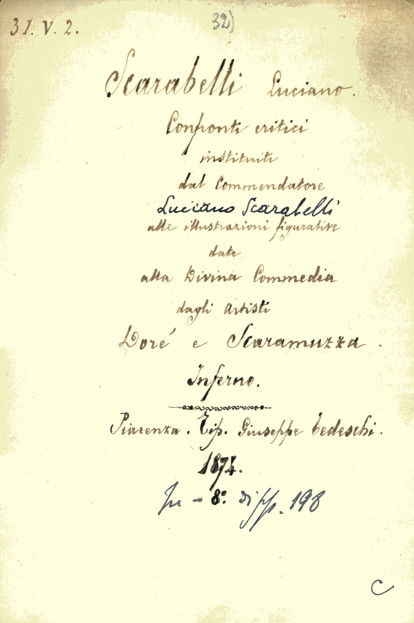 31. V. 2.
32)
Scarabelli Luciano.
Confronti critici
instituiti
dal Commendatore
Luciano Scarabelli
alle illustrazioni figurative
date
alla Divina Commedia
dagli artisti
Doré e Scaramuzza.
Inferno.
Piacenza. Tip. Giuseppe Tedeschi.
1874.
In - 8.° di pp. 198
C